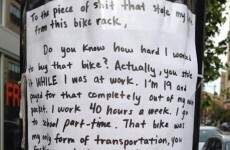 To the piece of shit that stole my
from this bike rack,
Do you know how hard I worked
to buy that bike? Actually, you stole
it WHILE I was at work. I'm 19 and
payed for that completely out of my own
I work 40 hours a week. I go
to school part-time. That bike was
my only form of transportation, you